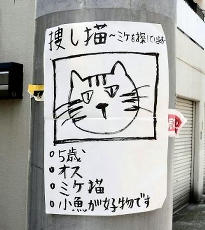 捜し猫 〜ミケを探しています〜
○5歳
○オス
○ミケ猫
○小魚が好物です